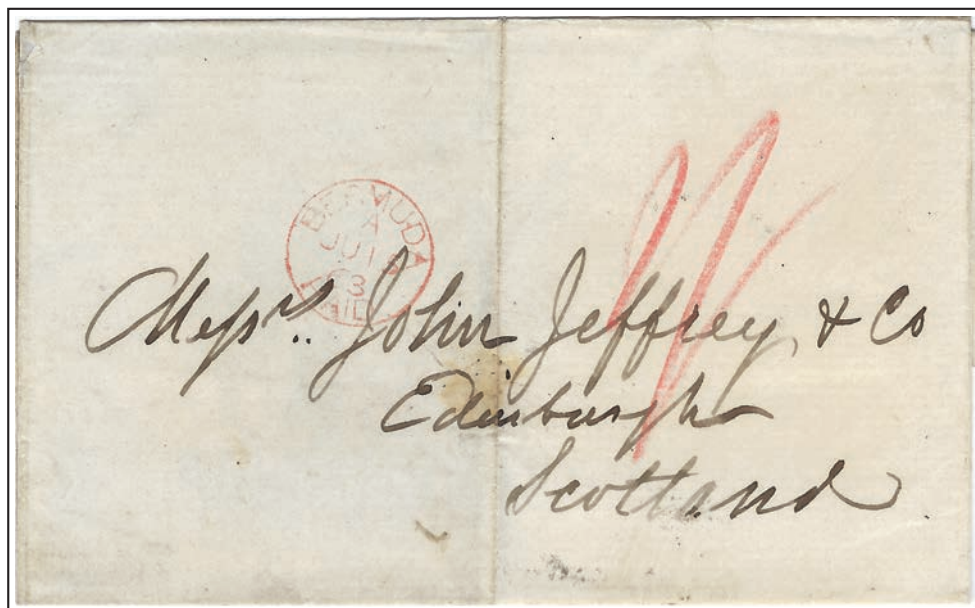 BERMUDA
A
JU 1
63
PAID
Messrs. John Jeffrey & Co
Edinburgh
Scotland